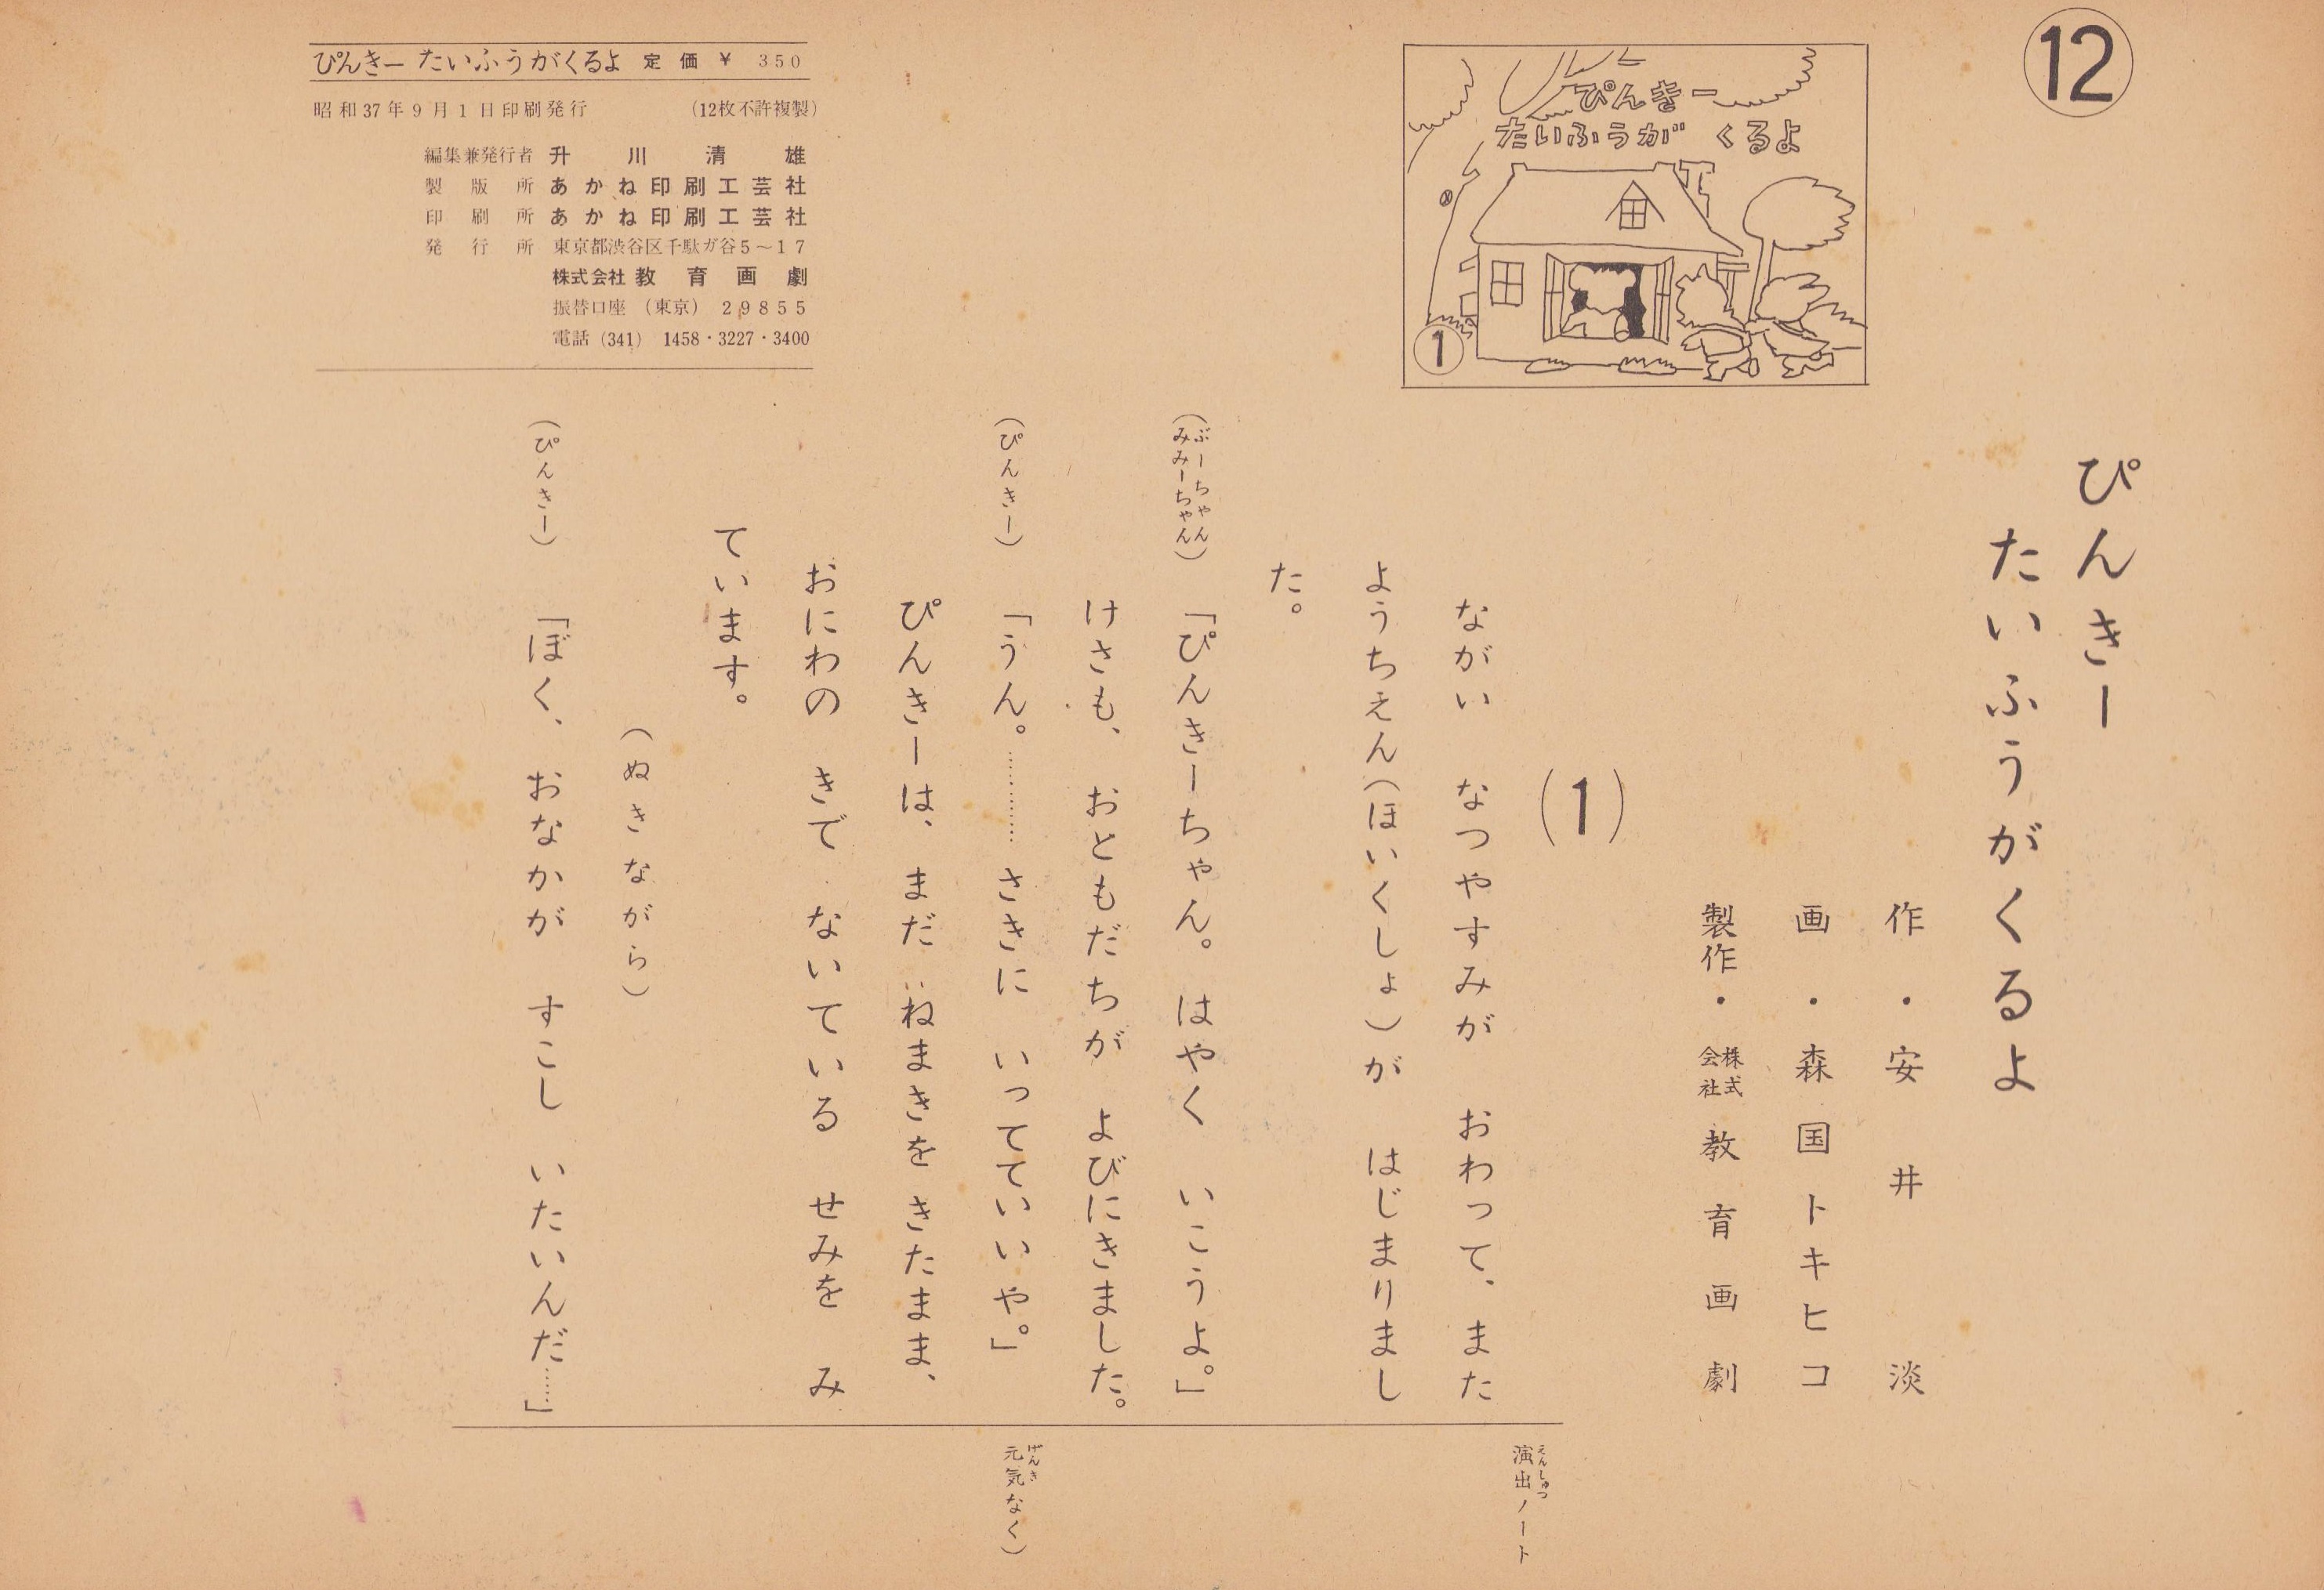 ⑫
ぴんきー
たいふうがくるよ
作・安井淡
画・森国トキヒコ
製作・株式会社教育画劇
ぴんきー
たいふうが くるよ
①
(1)
ながい なつやすみが おわって、また
ようちえん(ほいくしょ)が はじまりまし
た。
(ぶーちゃん
みみーちゃん)「ぴんきーちゃん。はやく いこうよ。」
けさも、 おともだちが よびにきました。
(ぴんきー)「うん。………… さきに いってていいや。」
ぴんきーは、 まだ ねまきを きたまま、
おにわの きで ないている せみを み
ています。
(ぬきながら)
(ぴんきー)「ぼく、 おなかが すこし いたいんだ……」
演出ノート
えんしゅつ
元気なく)
げんき
ぴんきー たいふうがくるよ 定価 ¥ 350
昭和37年9月1日印刷発行 (12枚不許複製)
編集兼発行者 升川清雄
製版所 あかね印刷工芸社
印刷所 あかね印刷工芸社
発行所 東京都渋谷区千駄ガ谷5~17
株式会社 教育画劇
振替口座 (東京) 29855
電話 (341) 1458・3227・3400